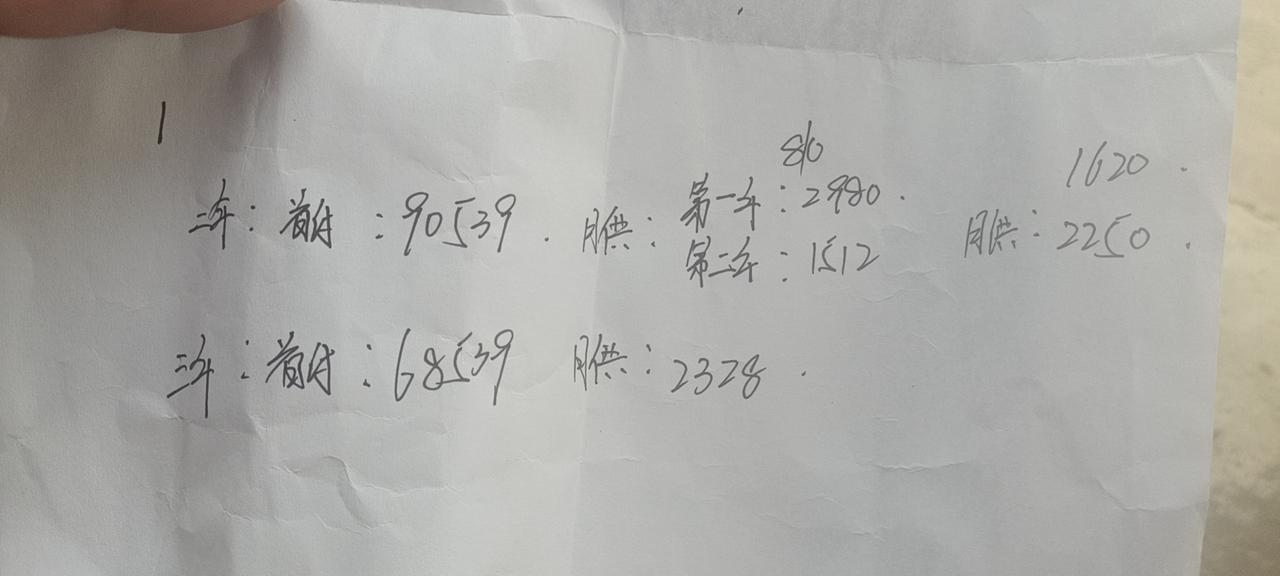 1
810
1620.
二年：首付：90539. 月供：第一年：2980. 月供：2250.
第二年：1512
三年：首付：68539 月供：2328.